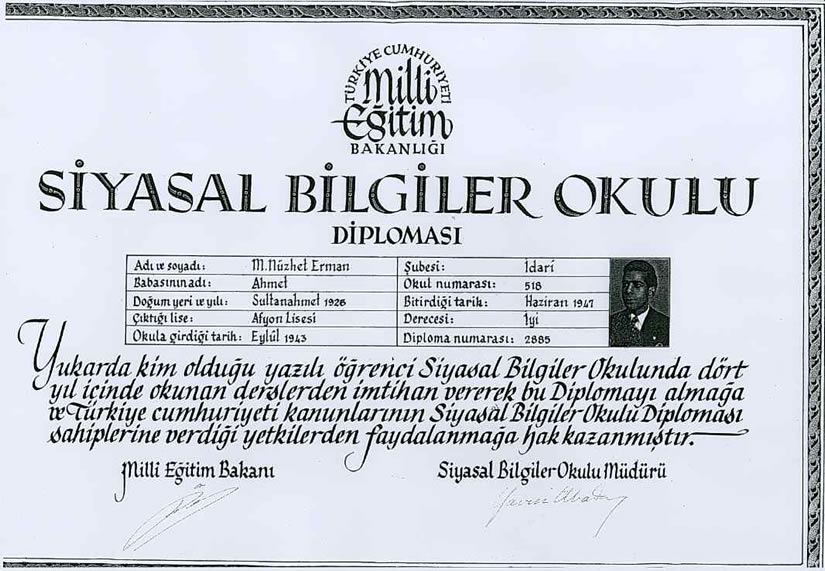 TÜRKİYE CUMHURİYETİ
Milli
Eğitim
BAKANLIĞI
SİYASAL BİLGİLER OKULU
DİPLOMASI
Adı ve soyadı: M. Nüzhet Erman Şubesi: İdari
Babasının adı: Ahmet Okul numarası: 518
Doğum yeri ve yılı: Sultanahmet 1926 Bitirdiği tarih: Haziran 1947
Çıktığı lise: Afyon Lisesi Derecesi: İyi
Okula girdiği tarih: Eylül 1943 Diploma numarası: 2885
Yukarda kim olduğu yazılı öğrenci Siyasal Bilgiler Okulunda dört
yıl içinde okunan derslerden imtihan vererek bu Diplomayı almağa
ve Türkiye cumhuriyeti kanunlarının Siyasal Bilgiler Okulu Diploması
sahiplerine verdiği yetkilerden faydalanmağa hak kazanmıştır.
Milli Eğitim Bakanı Siyasal Bilgiler Okulu Müdürü